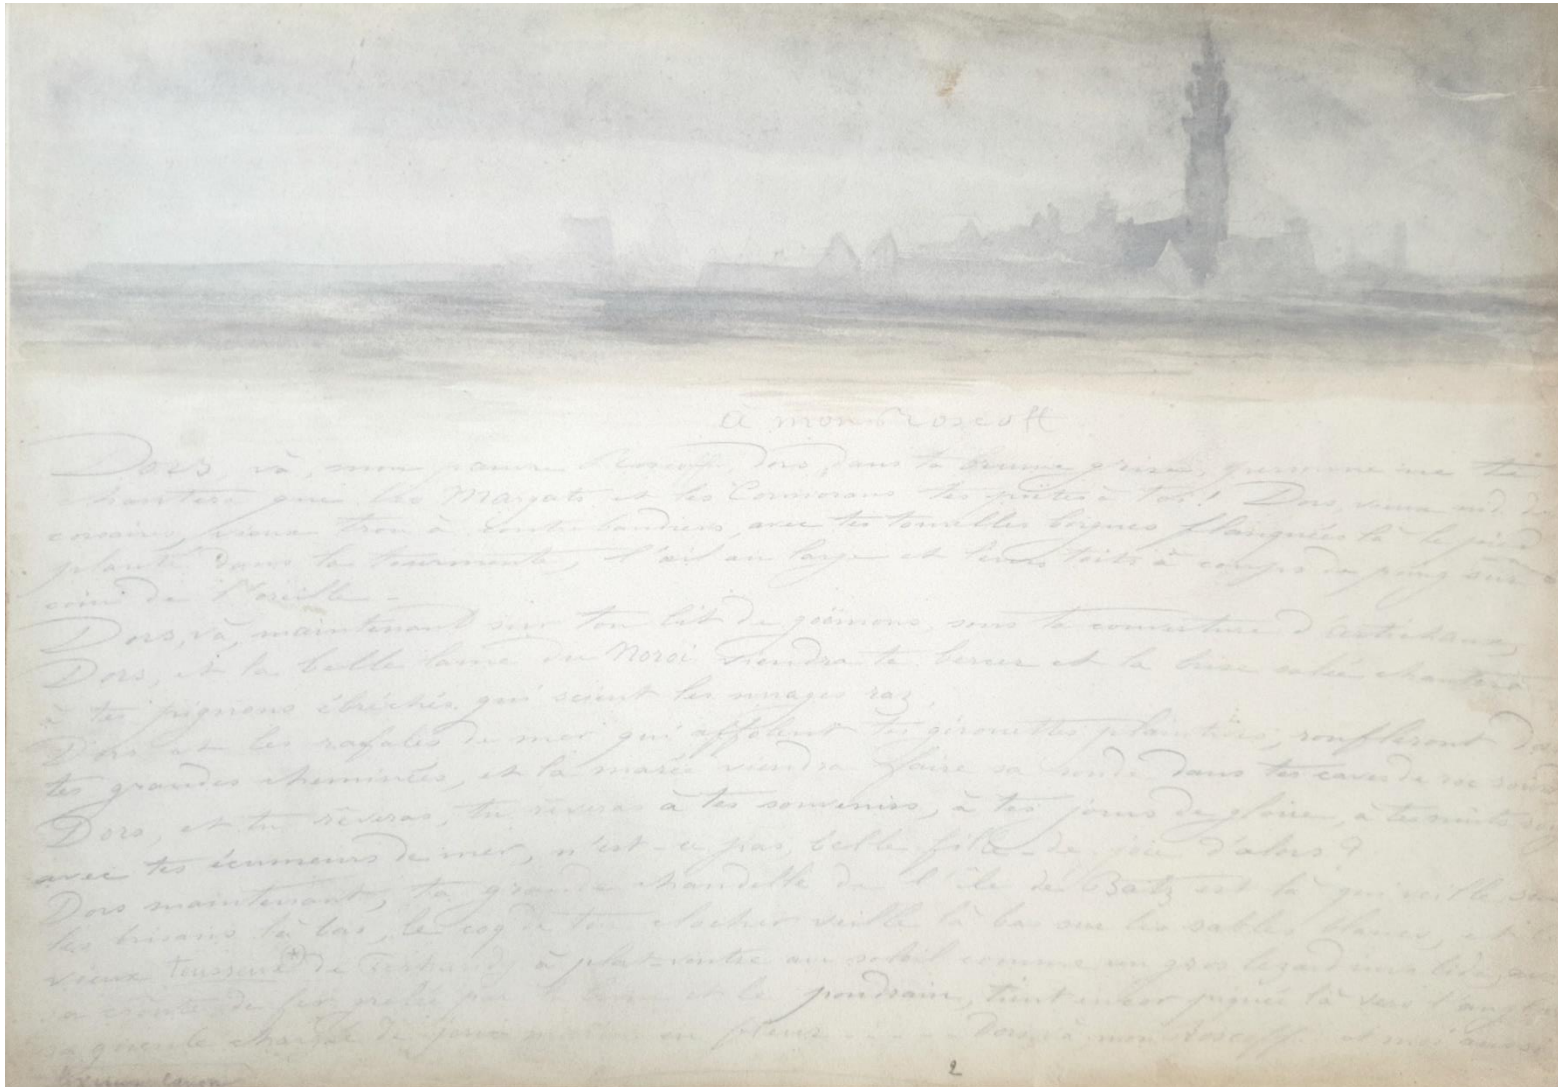 a mon Roscoff
Dors, và, mon pauvre Roscoff, dors, dans ta brume grise, personne ne te
chantera que les Margats et les Cormorans tes poëtes à toi! Dors, vieux nid de
corsaires, vieux trou à contrebandiers, avec tes tourelles borgnes flanquées là le pied
planté dans la tourmente, l'œil au large et leurs toits à coups de poing sur
coin de l'oreille -
Dors, và, maintenant sur ton lit de goëmons, sous ta couverture d'artichaux,
Dors, et la belle lame du Noroi viendra te bercer et la brise salée chantera
à tes pignons ébréchés qui scient les nuages raz,
Dors et les rafales de mer qui affolent tes girouettes plaintives, ronfleront
tes grandes cheminées, et la marée viendra faire sa ronde dans tes caves de
Dors, et tu rêveras, tu rêveras à tes souvenirs, à tes jours de gloire, à tes nuits
avec tes écumeurs de mer, n'est-ce pas, belle fille-de joie d'alors?
Dors maintenant, ta grande chandelle de l'île de Batz est là qui veille sur
les brisans là bas, le coq de ton clocher veille là bas sur les sables blancs, et
vieux de à plat-ventre au soleil comme un gros lezard
sa de fer par la et le poudrain, tient encor piquée là vers l'anglais
sa gueule chargée de en fleur ..... Dors, và mon Roscoff et moi aussi
2